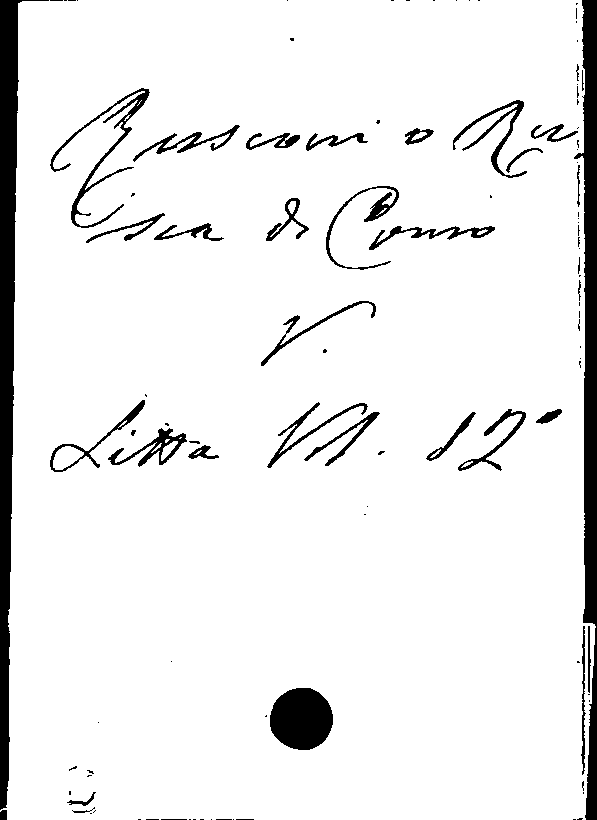 Rusconi o Ru-
sca di Como
V.
Litta Vol. 12°